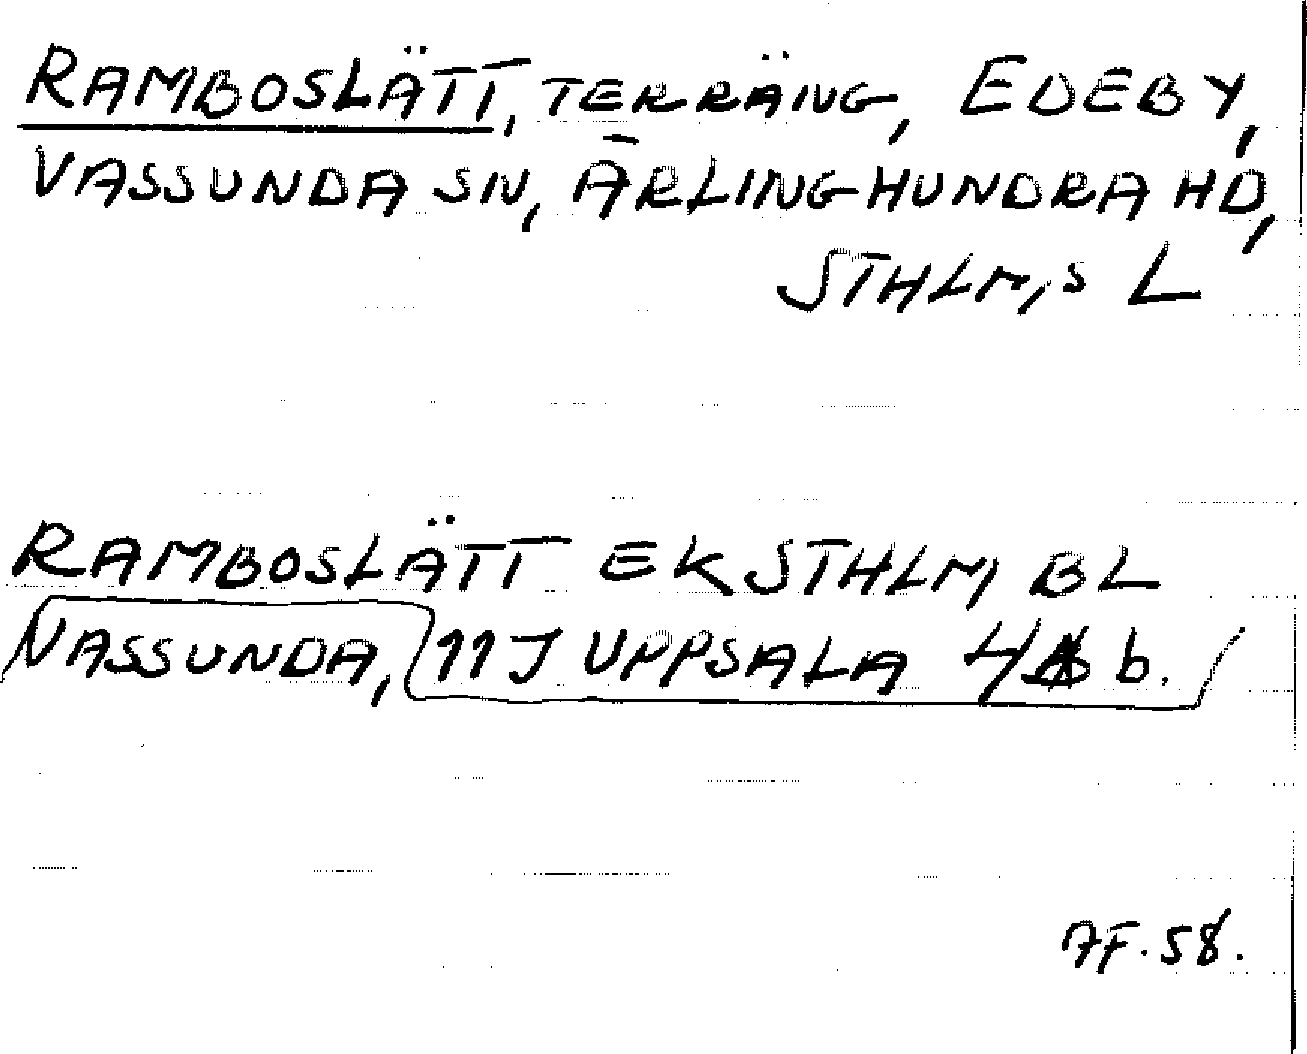 RAMBOSLÄTT, TERRÄNG, EDEBY,
VASSUNDA SN, ÄRLINGHUNDRA HD,
STHLM,S L
RAMBOSLÄTT EK STHLM, BL
VASSUNDA, 11J UPPSALA 4 b.
AF.58.